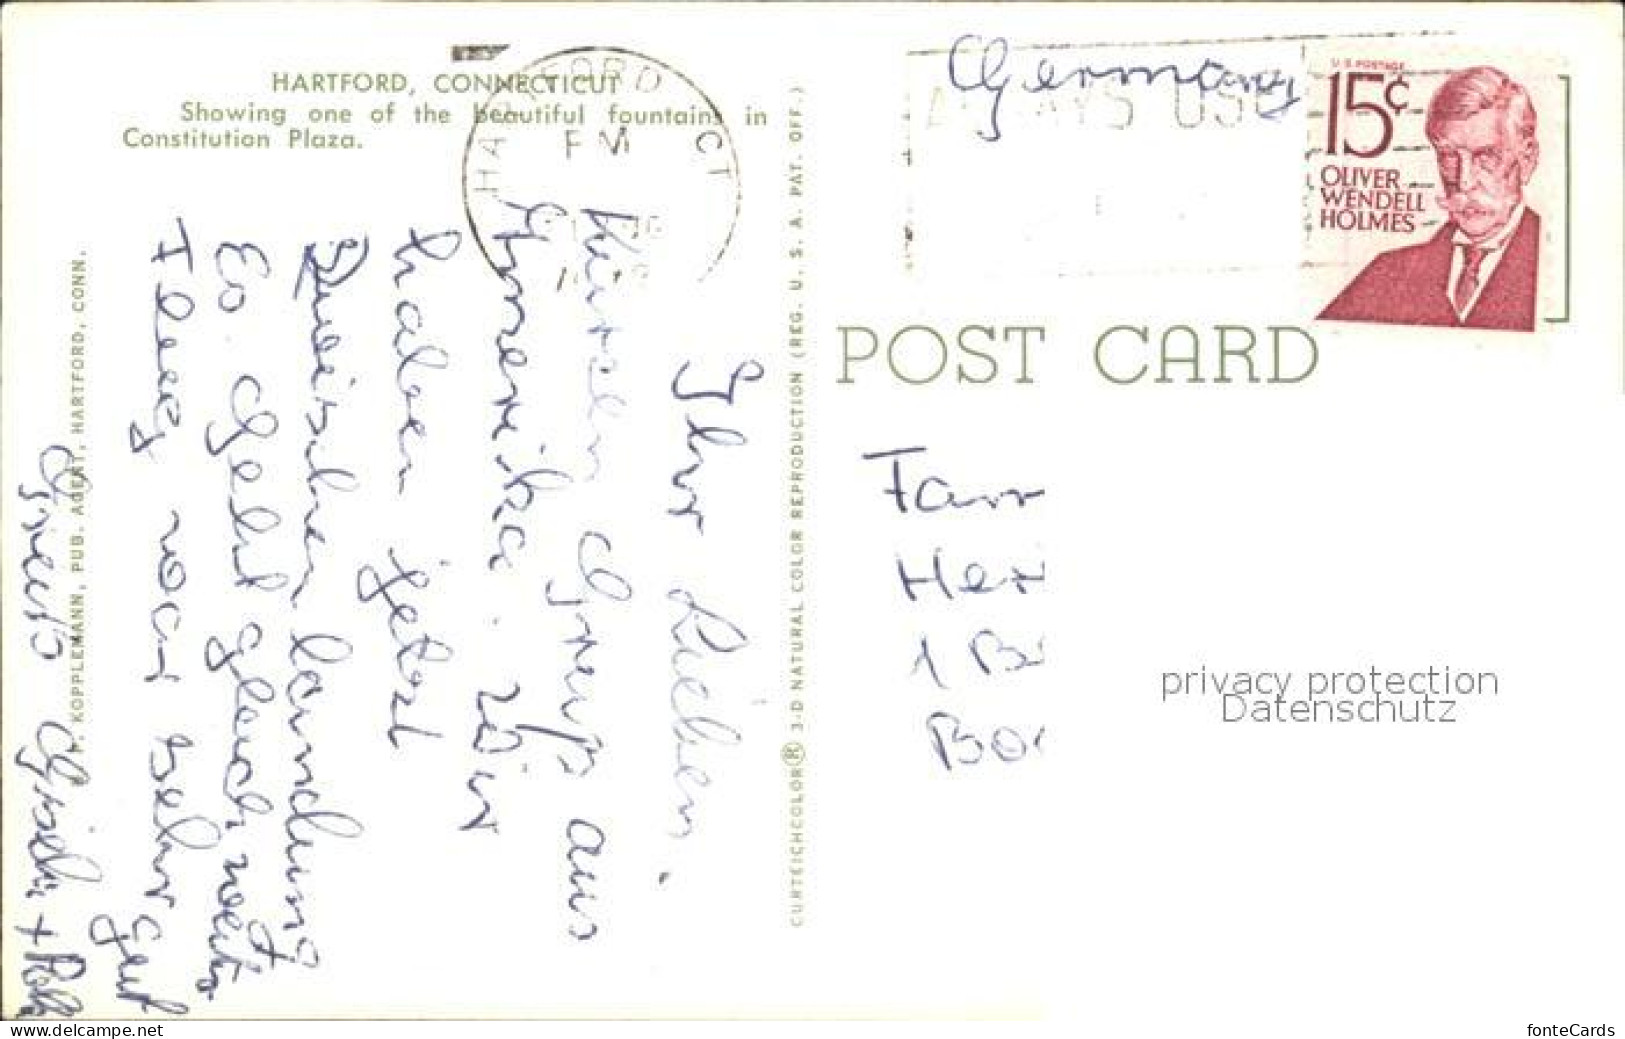 HARTFORD, CONNECTICUT
Showing one of the beautiful fountains in
Constitution Plaza.
P. KOPPLEMANN, PUB. AGENT, HARTFORD, CONN.
Ihr Lieben.
Gruß aus
Amerika. Wir
haben jetzt
Zwischenlandung
Es geht gleich weiter
Flug war sehr gut
Gruß
CURTEICHCOLOR® 3-D NATURAL COLOR REPRODUCTION (REG. U. S. A. PAT. OFF.)
HARTFORD CT
PM
ALWAYS USE
Germany
U.S. POSTAGE
15¢
OLIVER
WENDELL
HOLMES
POST CARD
Fam
Her
1 B
Bo
privacy protection
Datenschutz
www.delcampe.net
fonteCards